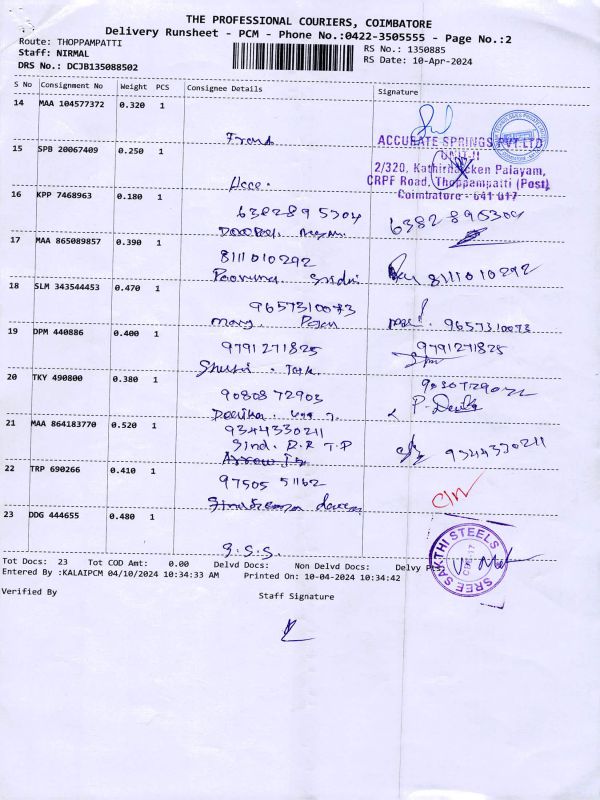 THE PROFESSIONAL COURIERS, COIMBATORE
Delivery Runsheet - PCM - Phone No.:0422-3505555 - Page No.:2
Route: THOPPAMPATTI
RS No.: 1350885
Staff: NIRMAL
RS Date: 10-Apr-2024
DRS No.: DCJB135088502
S No Consignment No Weight PCS Consignee Details Signature
14 MAA 104577372 0.320 1
ACCURATE SPRINGS PVT LTD
UNIT-II
15 SPB 20067409 0.250 1
2/320, Kathirnaicken Palayam,
CRPF Road, Thoppampatti (Post)
Coimbatore - 641 017
16 KPP 7468963 0.180 1
6382895304
6382895304
17 MAA 865089857 0.390 1
8111010292
Poornima
8111010292
18 SLM 343544453 0.470 1
9657310073
9657310073
19 DPM 440886 0.400 1
9791271825
9791271825
20 TKY 490800 0.380 1
90808 72903
P. Devika
21 MAA 864183770 0.520 1
9344330211
Sind. R.R T.P
9344330211
22 TRP 690266 0.410 1
97505 51162
C/W
23 DDG 444655 0.480 1
SREE SAKTHI STEELS
CBE-17
G.S.S.
Tot Docs: 23 Tot COD Amt: 0.00 Delvd Docs: Non Delvd Docs: Delvy Pts:
Entered By :KALAIPCM 04/10/2024 10:34:33 AM Printed On: 10-04-2024 10:34:42
Verified By Staff Signature